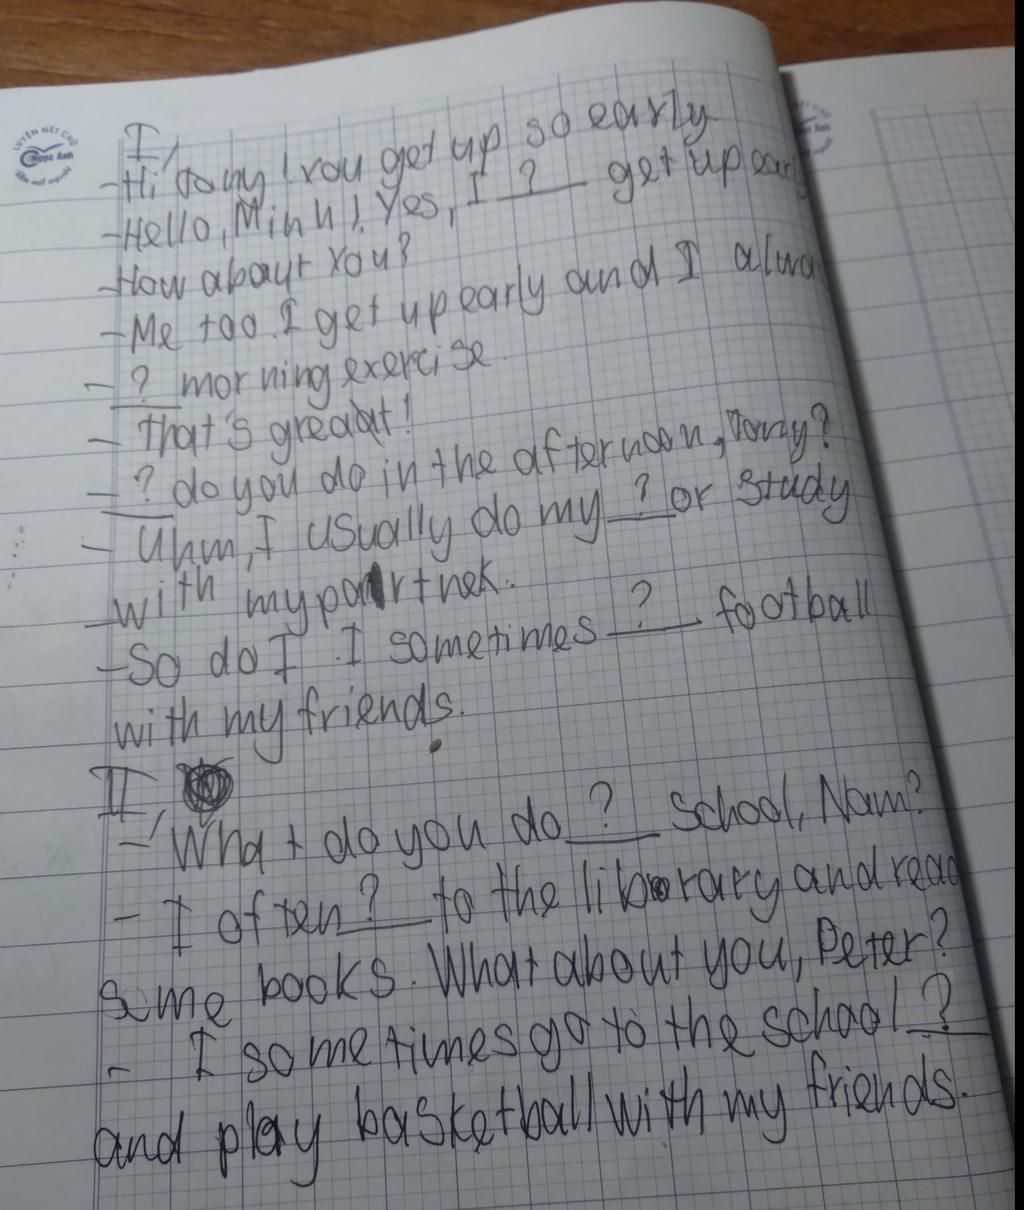 LUYỆN NÉT CHỮ
Ngọc Ánh
I,
-Hi Tony! You get up so early
-Hello, Minh! Yes, I ? get up early
-How abayt You?
-Me too. I get up early and I alwa
- ? morning exercise.
- That's greaat!
- ? do you do in the afternoon, Tony?
- Uhm, I usually do my ? or study
with my partnek.
-So do I. I sometimes ? football
with my friends.
II,
- What do you do ? school, Nam?
- I often ? to the library and read
some books. What about you, Peter?
- I sometimes go to the school ?
and play basketball with my friends.